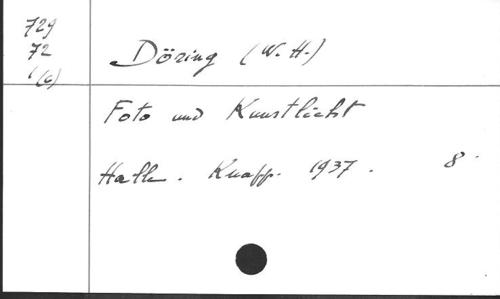 729
72
1(c)
Döring (W. H.)
Foto und Kunstlicht
Halle. Knapp. 1937. 8.